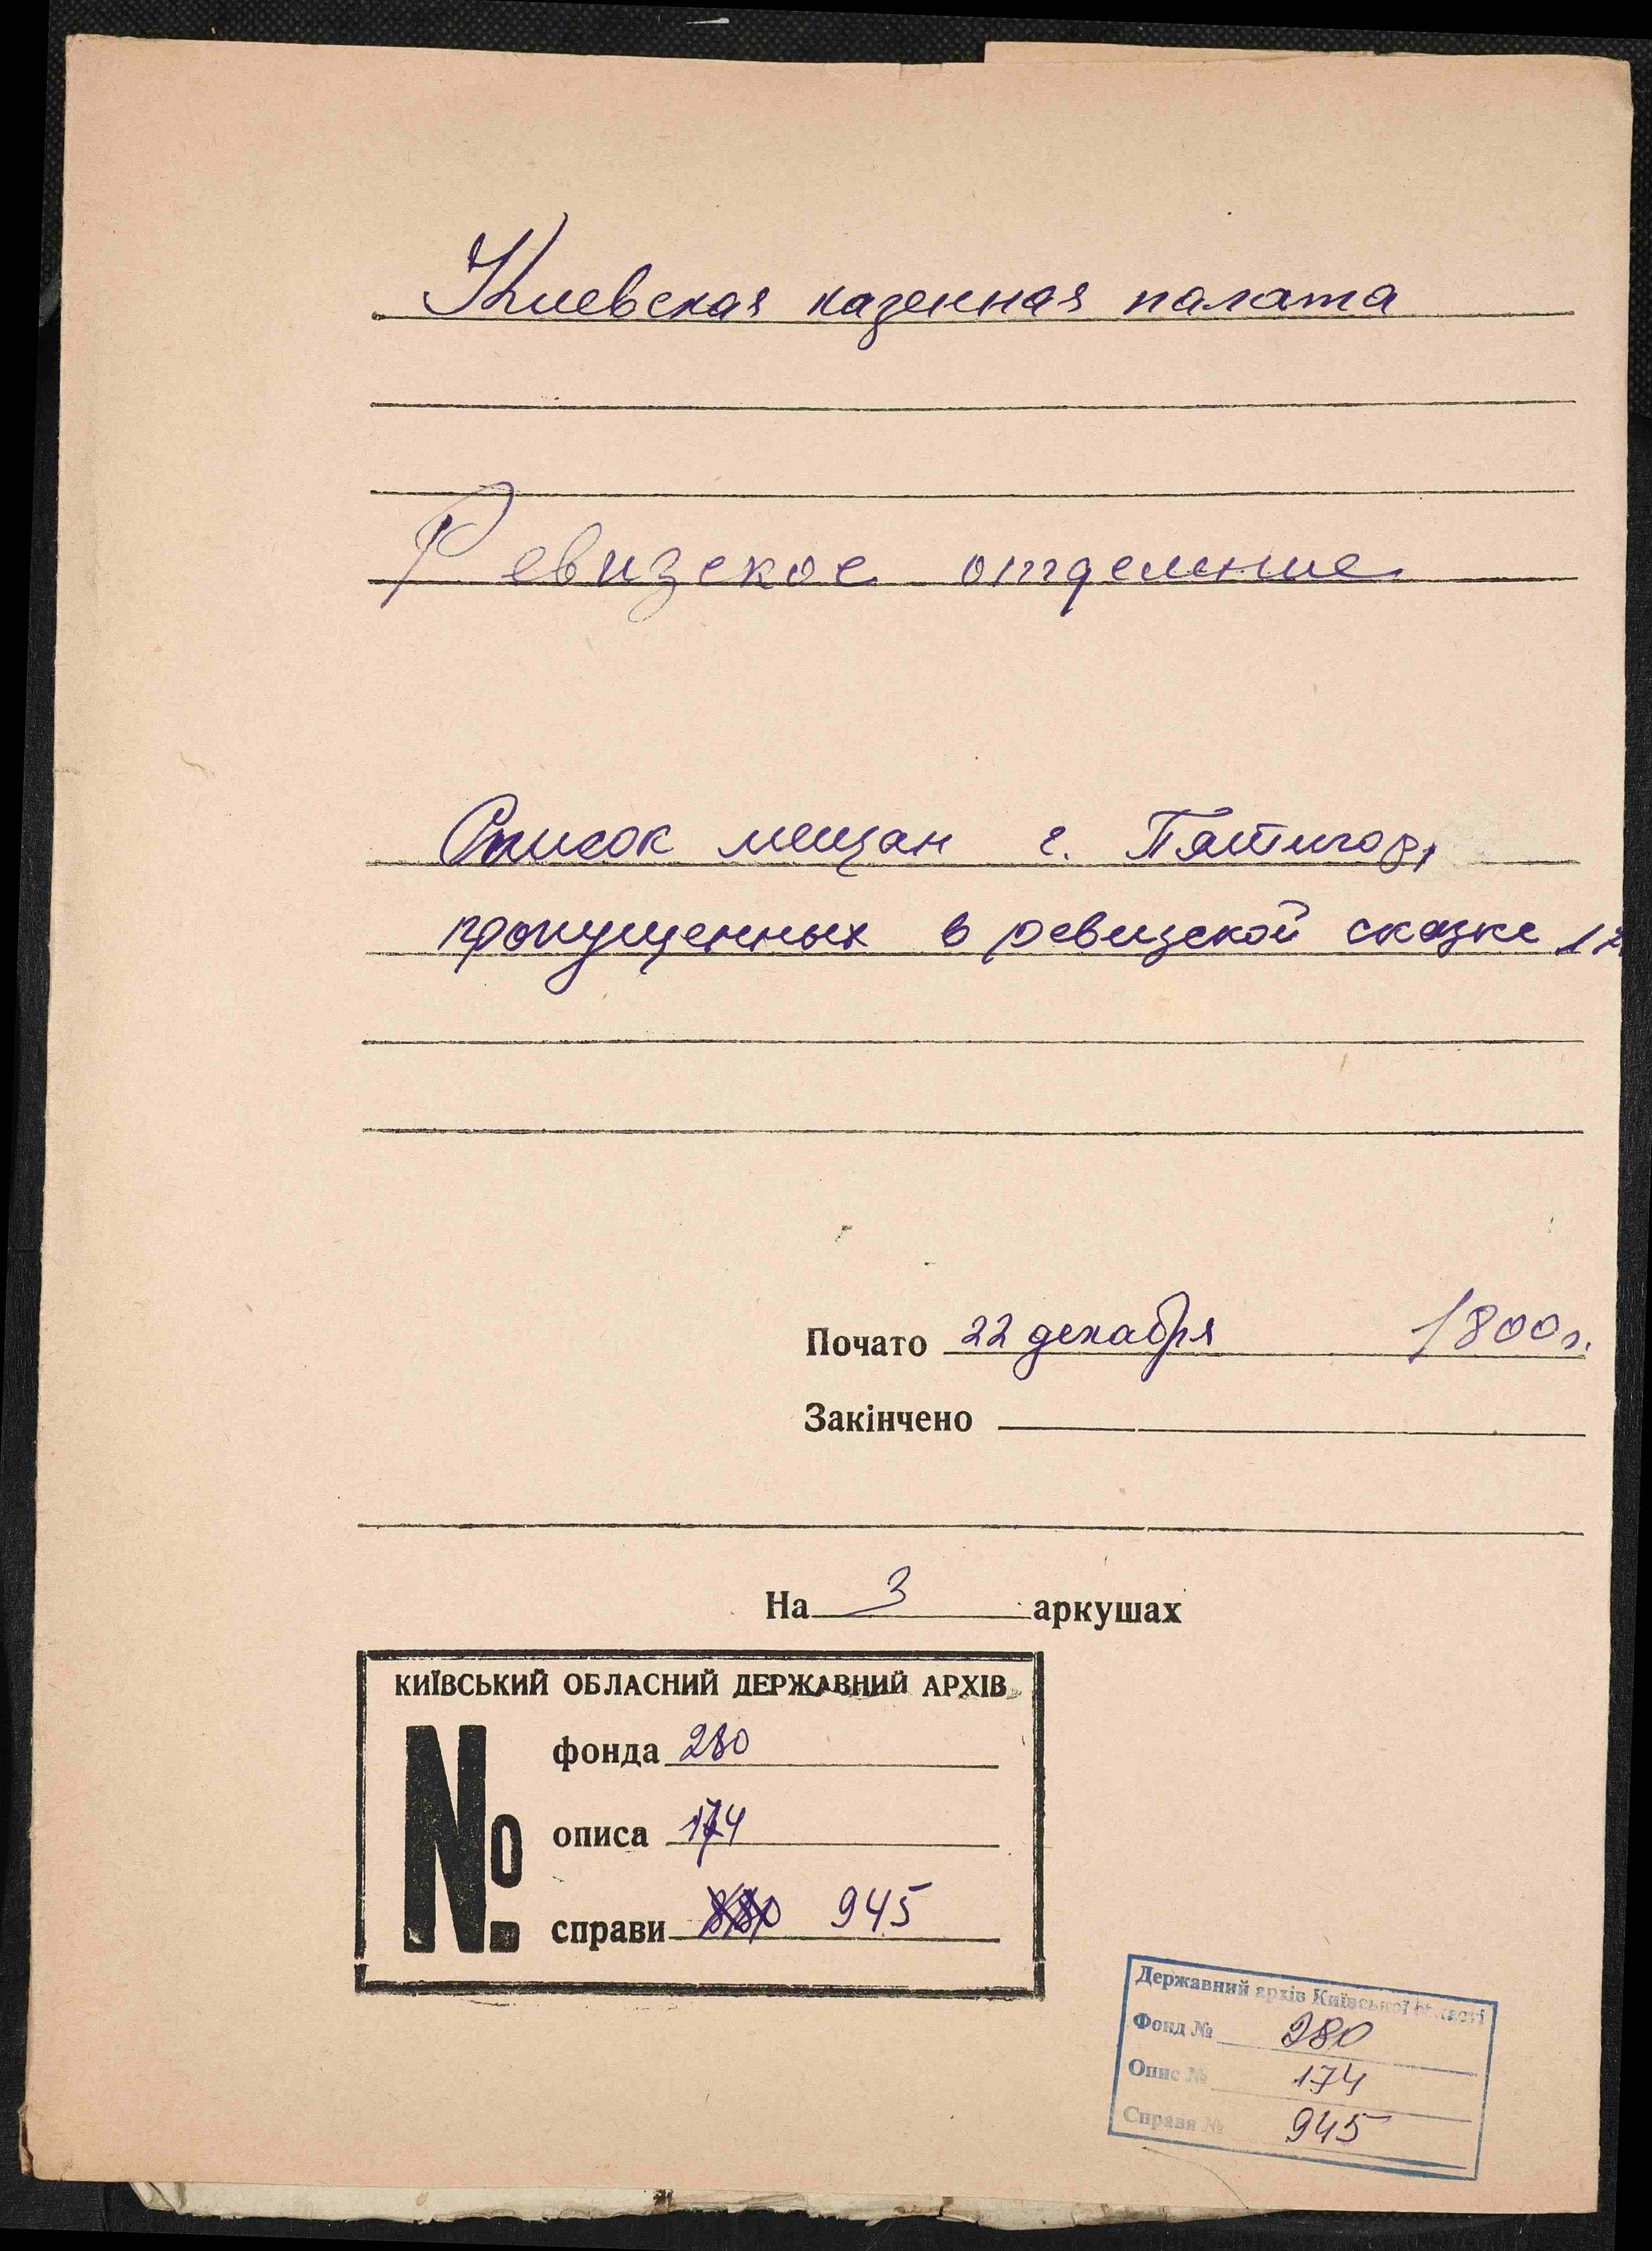 Киевская казенная палата
Ревизское отделение
Список мещан г. Пятигор,
пропущенных в ревизской сказке
Почато 22 декабря 1800г.
Закінчено
На 3 аркушах
КИЇВСЬКИЙ ОБЛАСНИЙ ДЕРЖАВНИЙ АРХІВ
№
фонда 280
описа 174
справи 945
Державний архів Київської області
Фонд № 280
Опис № 174
Справа № 945